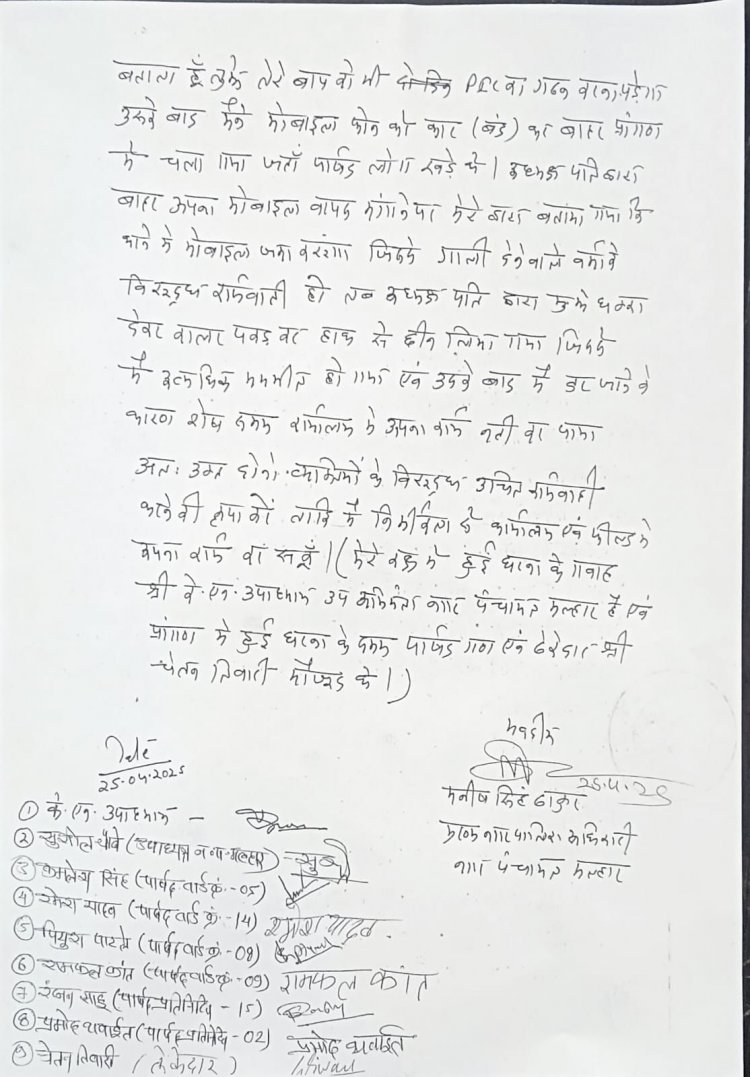 बताता हूँ तुझे तेरे बाप को भी PIC का गठन करना पड़ेगा
उसके बाद मैंने मोबाइल फोन को काट (बंद) कर बाहर प्रांगण
मे चला गया जहाँ पार्षद लोग खड़े थे। अध्यक्ष पति द्वारा
बाहर अपना मोबाइल वापस मांगने पर मेरे द्वारा बताया गया कि
थाने मे मोबाइल जमा करूंगा जिससे गाली देने वाले कर्मी के
विरूद्ध कार्यवाही हो तब अध्यक्ष पति द्वारा मुझे धक्का
देकर कालर पकड़ कर हाथ से छीन लिया गया जिससे
मैं अत्यधिक भयभीत हो गया एवं उसके बाद मैं डर जाने के
कारण शेष समय कार्यालय मे अपना कार्य नही कर पाया
अतः उक्त दोनो व्यक्तियों के विरूद्ध उचित कार्यवाही
करने की कृपा करें ताकि मैं निर्भिकता से कार्यालय एवं फील्ड मे
अपना कार्य कर सकूँ। (मेरे कक्ष मे हुई घटना के गवाह
श्री के. एन. उपाध्याय उप अभियंता नगर पंचायत मल्हार है एवं
प्रांगण मे हुई घटना के समय पार्षद गण एवं ठेकेदार श्री
चेतन तिवारी मौजूद थे।)
भवदीय
Date
25.04.2025
25.4.25
मनीष सिंह ठाकुर
मुख्य नगर पालिका अधिकारी
नगर पंचायत मल्हार
① के. एन. उपाध्याय -
② सुशील चौबे (उपाध्यक्ष न.पं. मल्हार) -
③ कमलेश सिंह (पार्षद वार्ड क्रं. - 05)
④ रमेश यादव (पार्षद वार्ड क्रं. - 14) रमेश यादव
⑤ (पार्षद वार्ड क्रं. - 08)
⑥ रामफल कांत (पार्षद वार्ड क्रं. - 09) रामफल कांत
⑦ रंजन साहू (पार्षद प्रतिनिधि - 15)
⑧ प्रमोद (पार्षद प्रतिनिधि - 02) प्रमोद
⑨ चेतन तिवारी (ठेकेदार)